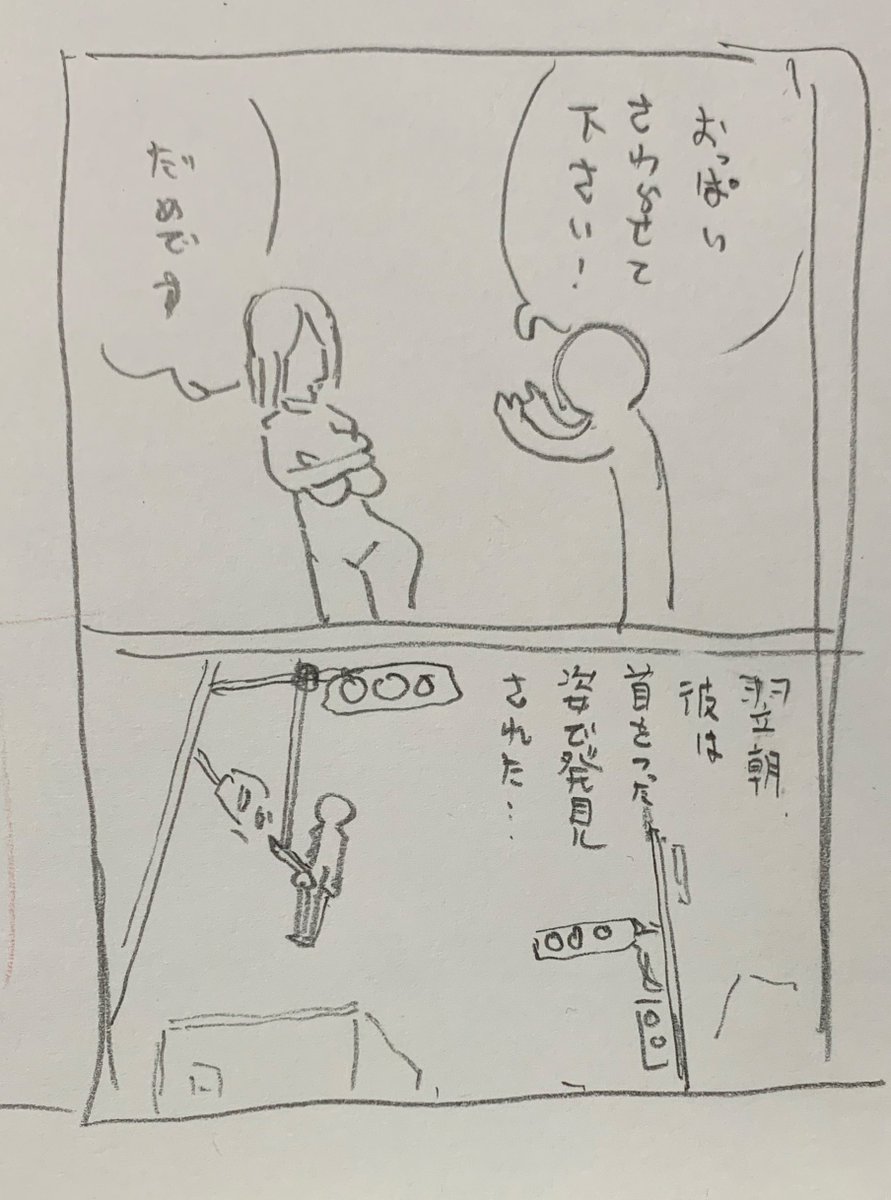 おっぱい
さわらせて
下さい！
だめです
翌朝
彼は
首をつった
姿で発見
された…